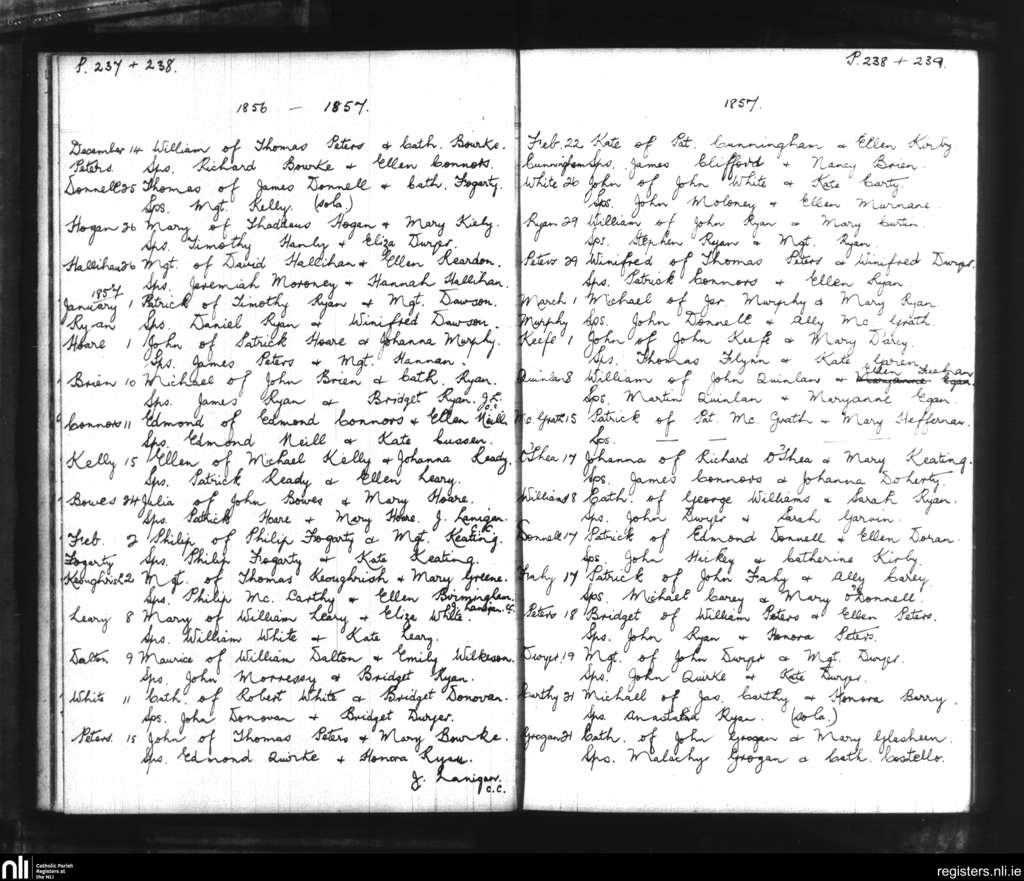 P. 237 + 238.
1856 — 1857.
December 14 William of Thomas Peters & Cath. Bourke.
Peters. Sps. Richard Bourke & Ellen Connors.
Donnell 25 Thomas of James Donnell & Cath. Fogarty.
Sps. Mgt. Kelly. (sola.)
Hogan 26 Mary of Thaddaus Hogan & Mary Kiely.
Sps. Timothy Hanly & Eliza Dwyer.
Hallihan 26 Mgt. of David Hallihan & Ellen Reardon.
Sps. Jeremiah Moroney & Hannah Hallihan.
1857
January 1 Patrick of Timothy Ryan & Mgt. Dawson.
Ryan Sps. Daniel Ryan & Winifred Dawson.
Hoare 1 John of Patrick Hoare & Johanna Murphy.
Sps. James Peters & Mgt. Hannan.
Brien 10 Michael of John Brien & Cath. Ryan.
Sps. James Ryan & Bridget Ryan. J.L. c.c.
Connors 11 Edmond of Edmond Connors & Ellen Neill
Sps. Edmond Neill & Kate Cussen.
Kelly 15 Ellen of Michael Kelly & Johanna Ready.
Sps. Patrick Ready & Ellen Leary.
Bowes 24 Julia of John Bowes & Mary Hoare.
Sps. Patrick Hoare & Mary Hoare. J. Lanigan.
Feb. 2 Philip of Philip Fogarty & Mgt. Keating.
Fogarty Sps. Philip Fogarty & Kate Keating.
Keoughrish 2 Mgt. of Thomas Keoughrish & Mary Greene.
Sps. Philip Mc. Carthy & Ellen Birmingham.
J. Lanigan.
Leary 8 Mary of William Leary & Eliza White.
Sps. William White & Kate Leary.
Dalton 9 Maurice of William Dalton & Emily Wilkeson.
Sps. John Morressy & Bridget Ryan.
White 11 Cath. of Robert White & Bridget Donovan.
Sps. John Donovan & Bridget Dwyer.
Peters. 15 John of Thomas Peters & Mary Bourke.
Sps. Edmond Quirke & Honora Ryan.
J. Lanigan.
c.c.
P. 238 + 239.
1857.
Feb. 22 Kate of Pat. Cunningham & Ellen Kirby
Cunningham Sps. James Clifford & Nancy Brien.
White 26 John of John White & Kate Carty.
Sps. John Moloney & Ellen Murnane.
Ryan 29 William of John Ryan & Mary Curtin.
Sps. Stephen Ryan & Mgt. Ryan.
Peters 29 Winifred of Thomas Peters & Winifred Dwyer.
Sps. Patrick Connors & Ellen Ryan.
March 1 Michael of Jar. Murphy & Mary Ryan.
Murphy Sps. John Donnell & Ally Mc Grath.
Keefe 1 John of John Keefe & Mary Darcy.
Sps. Thomas Flynn & Kate
Ellen Feehan
Quinlan 8 William of John Quinlan & Maryanne Egan.
Sps. Martin Quinlan & Maryanne Egan.
Mc. Grath 15 Patrick of Pat. Mc. Grath & Mary Heffernan.
Sps. — — —
O'Shea 17 Johanna of Richard O'Shea & Mary Keating.
Sps. James Connors & Johanna Doherty.
Williams 8 Cath. of George Williams & Sarah Ryan.
Sps. John Dwyer & Sarah Garvin.
Donnell 17 Patrick of Edmond Donnell & Ellen Doran.
Sps. John Hickey & Catherine Kirby.
Fahy 17 Patrick of John Fahy & Ally Carey.
Sps. Michael Carey & Mary O'Donnell.
Peters 18 Bridget of William Peters & Ellen Peters.
Sps. John Ryan & Honora Peters.
Dwyer 19 Mgt. of John Dwyer & Mgt. Dwyer.
Sps. John Quirke & Kate Dwyer.
Carthy 21 Michael of Jas. Carthy & Honora Barry.
Sps. Anastatia Ryan. (sola.)
Grogan 21 Cath. of John Grogan & Mary Glasheen.
Sps. Malachy Grogan & Cath. Costello.
nli Catholic Parish
Registers at
the NLI
registers.nli.ie